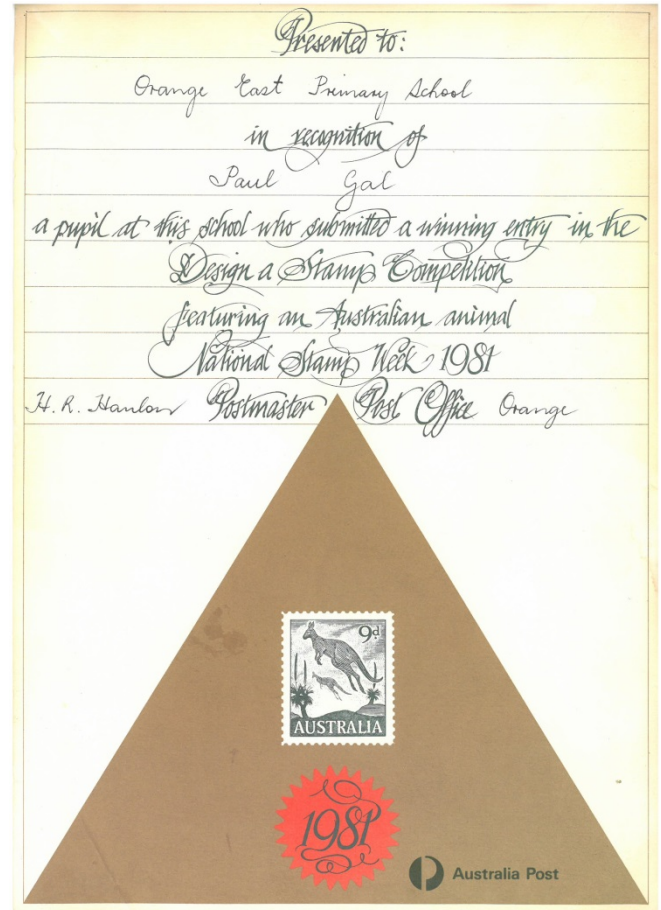 Presented to:
Orange East Primary School
in recognition of
Paul Gal
a pupil at this school who submitted a winning entry in the
Design a Stamp Competition
featuring an Australian animal
National Stamp Week 1981
H. R. Hanlon Postmaster Post Office Orange
9d
AUSTRALIA
1981
Australia Post